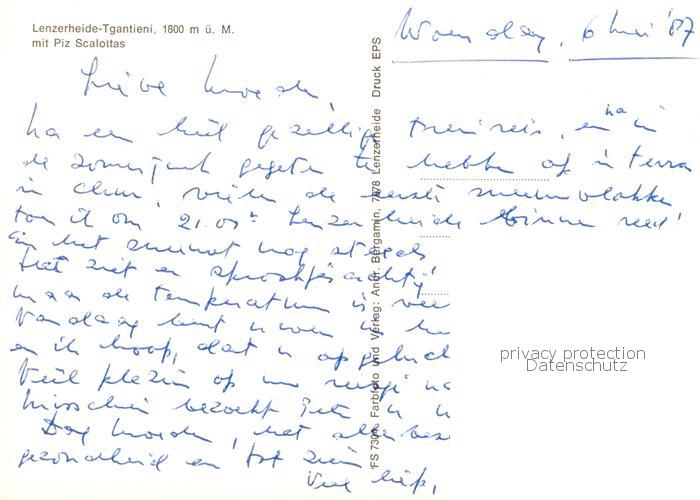 Lenzerheide-Tgantieni, 1800 m ü. M.
mit Piz Scalottas
Woensdag, 6 mei '87
Lieve moeder,
Na een heel gezellige treinreis, en na in
de zomerjurk gegeten te hebben op 'n terras
in Chur, vielen de eerste sneeuwvlokken
toen ik om 21.00 u Lenzerheide binnen reed!
En het sneeuwt nog steeds
Het ziet er sprookjesachtig!
maar de temperatuur is
Vandaag bent u
en ik hoop, dat u
Veel plezier op uw
Misschien bezoekt
Dag moeder, met alle
gezondheid en tot ziens
Veel liefs,
FS 7304 Farbfoto und Verlag: Andr. Bergamin, 7078 Lenzerheide Druck EPS
privacy protection
Datenschutz